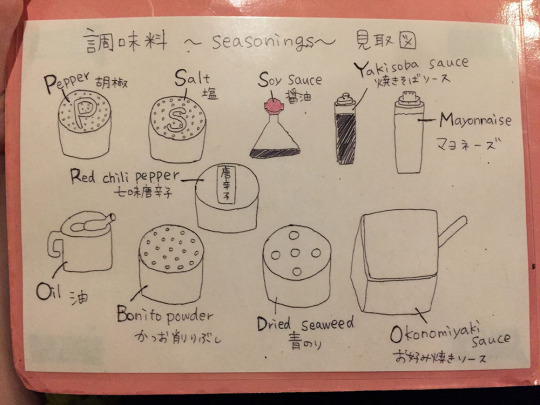 調味料 ~ seasonings~ 見取図
Pepper 胡椒
P
Salt
塩
S
Soy sauce
醤油
Yakisoba sauce
焼きそばソース
Mayonnaise
マヨネーズ
Red chili pepper
七味唐辛子
唐辛子
Oil 油
Bonito powder
かつお削りぶし
Dried seaweed
青のり
Okonomiyaki
sauce
お好み焼きソース